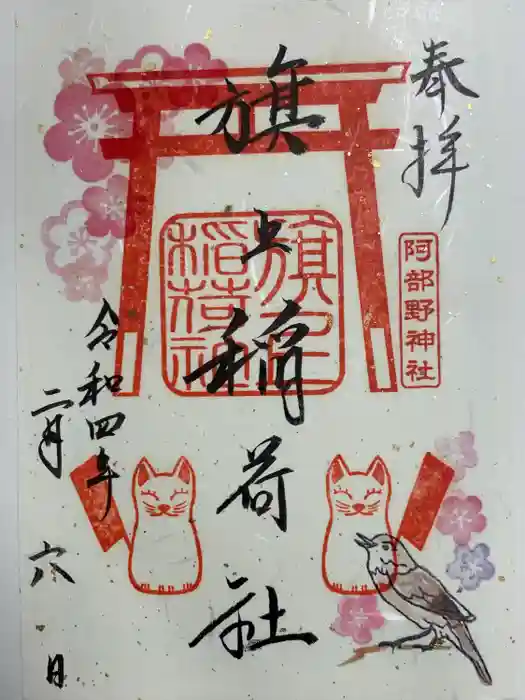 奉拝
阿部野神社
旗上稲荷社
旗上稲荷社
令和四年
二月
六日